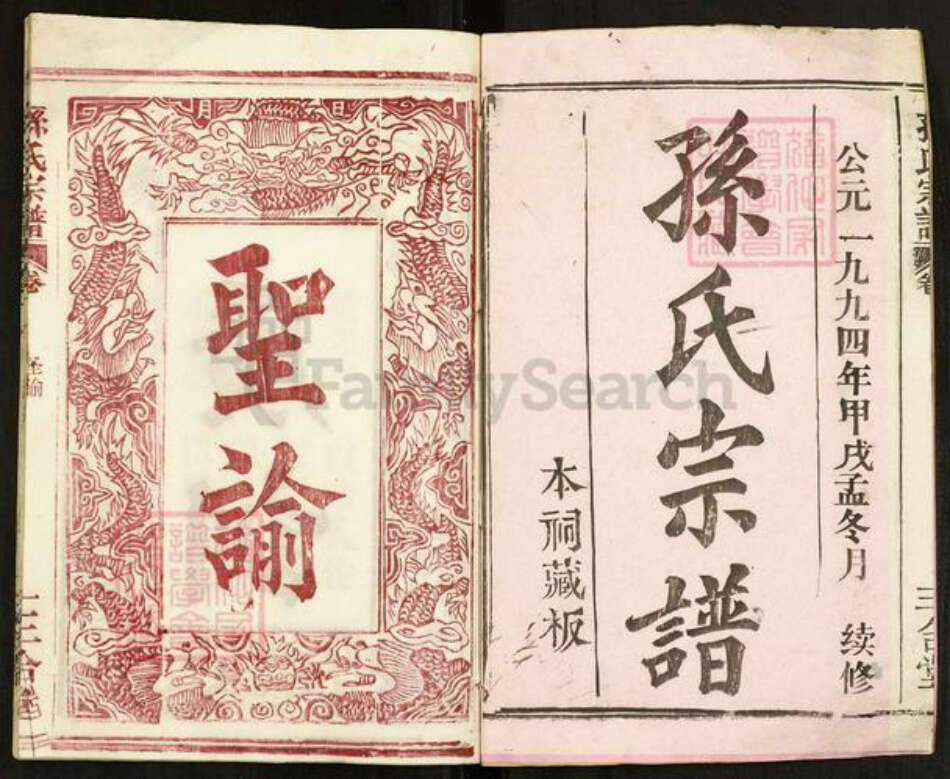 公元一九九四年甲戌孟冬月 续修
孫氏宗譜
本祠藏板
聖諭
日
月
孫氏宗譜
卷
聖諭
三合堂
FamilySearch